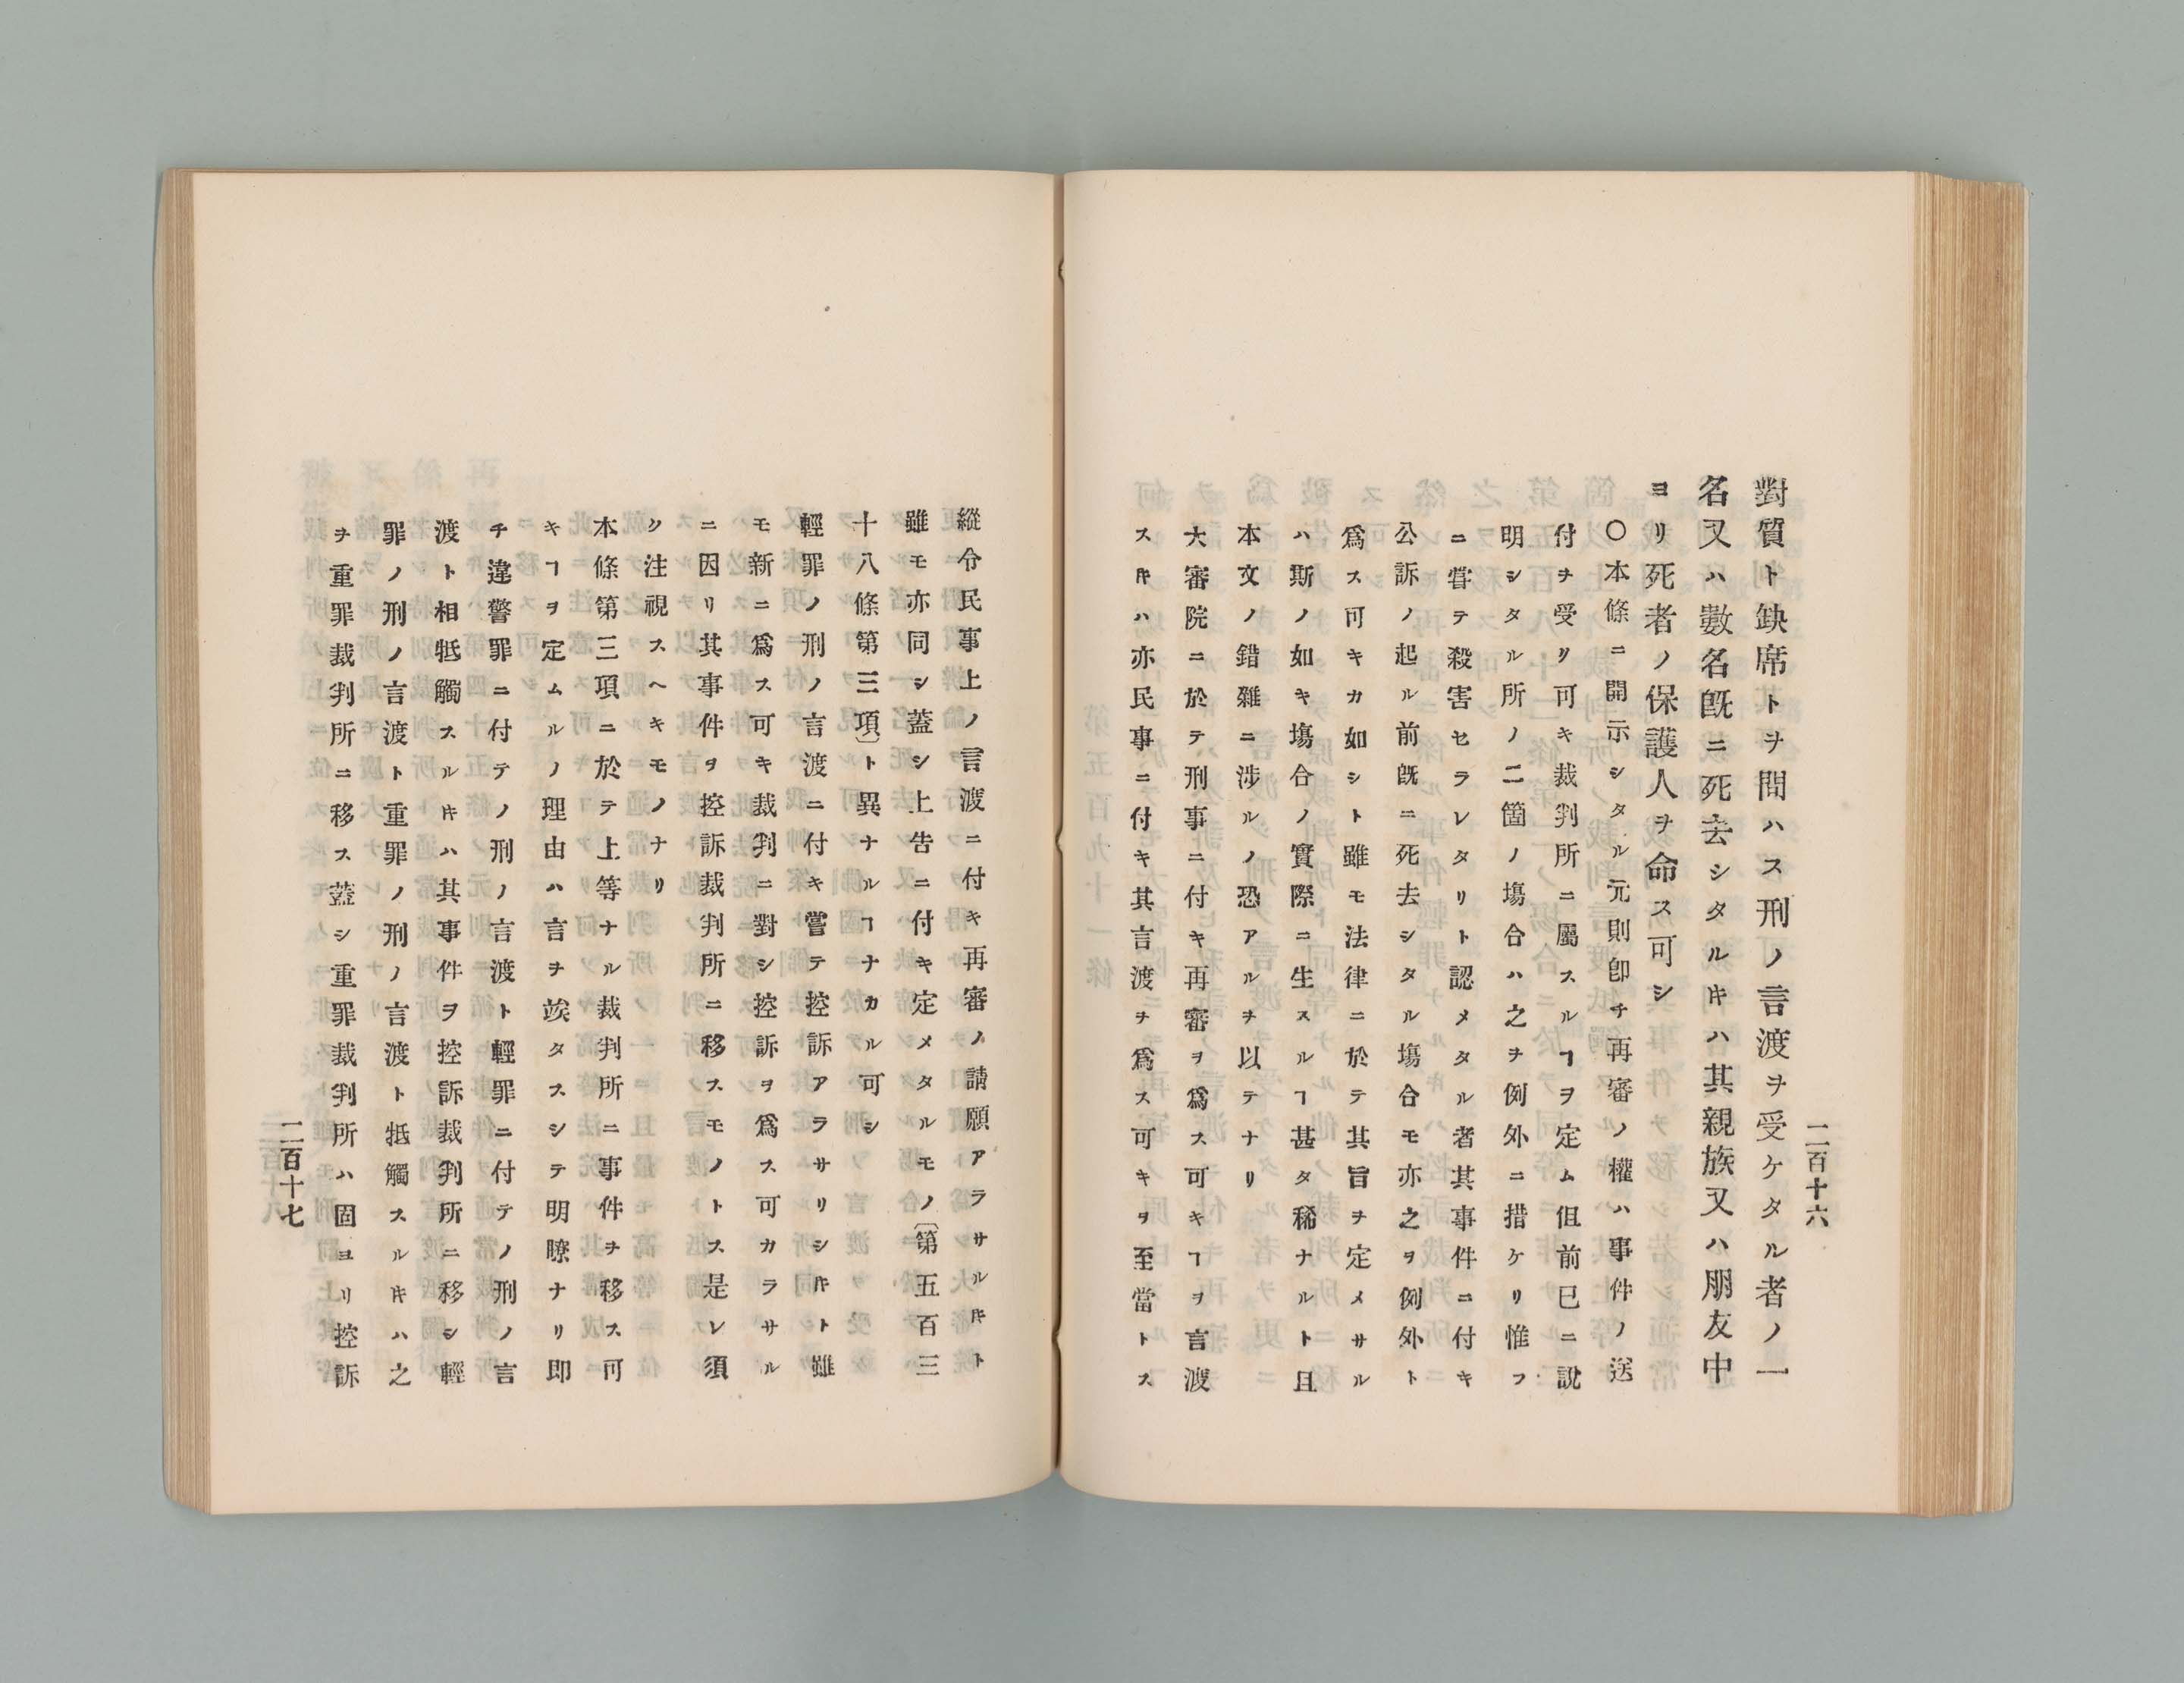 二百十六
對質ト缺席トヲ問ハス刑ノ言渡ヲ受ケタル者ノ一
名又ハ數名既ニ死去シタル𪜈ハ其親族又ハ朋友中
ヨリ死者ノ保護人ヲ命ス可シ
〇本條ニ開示シタル元則卽チ再審ノ權ハ事件ノ送
付ヲ受ク可キ裁判所ニ屬スルヿヲ定ム但前已ニ說
明シタル所ノ二箇ノ塲合ハ之ヲ例外ニ措ケリ惟フ
ニ甞テ殺害セラレタリト認メタル者其事件ニ付キ
公訴ノ起ル前既ニ死去シタル塲合モ亦之ヲ例外ト
爲ス可キカ如シト雖モ法律ニ於テ其旨ヲ定メサル
ハ斯ノ如キ塲合ノ實際ニ生スルヿ甚タ稀ナルト且
本文ノ錯雜ニ涉ルノ恐アルヲ以テナリ
大審院ニ於テ刑事ニ付キ再審ヲ爲ス可キヿヲ言渡
スキハ亦民事ニ付キ其言渡ヲ爲ス可キヲ至當トス
縱令民事上ノ言渡ニ付キ再審ノ請願アラサルキト
雖モ亦同シ蓋シ上告ニ付キ定メタルモノ〔第五百三
十八條第三項〕ト異ナルヿナカル可シ
輕罪ノ刑ノ言渡ニ付キ甞テ控訴アラサリシキト雖
モ新ニ爲ス可キ裁判ニ對シ控訴ヲ爲ス可カラサル
ニ因リ其事件ヲ控訴裁判所ニ移スモノトス是レ須
ク注視スヘキモノナリ
本條第三項ニ於テ上等ナル裁判所ニ事件ヲ移ス可
キヿヲ定ムルノ理由ハ言ヲ竢タスシテ明瞭ナリ卽
チ違警罪ニ付テノ刑ノ言渡ト輕罪ニ付テノ刑ノ言
渡ト相牴觸スルキハ其事件ヲ控訴裁判所ニ移シ輕
罪ノ刑ノ言渡ト重罪ノ刑ノ言渡ト牴觸スルキハ之
ヲ重罪裁判所ニ移ス蓋シ重罪裁判所ハ固ヨリ控訴
二百十七